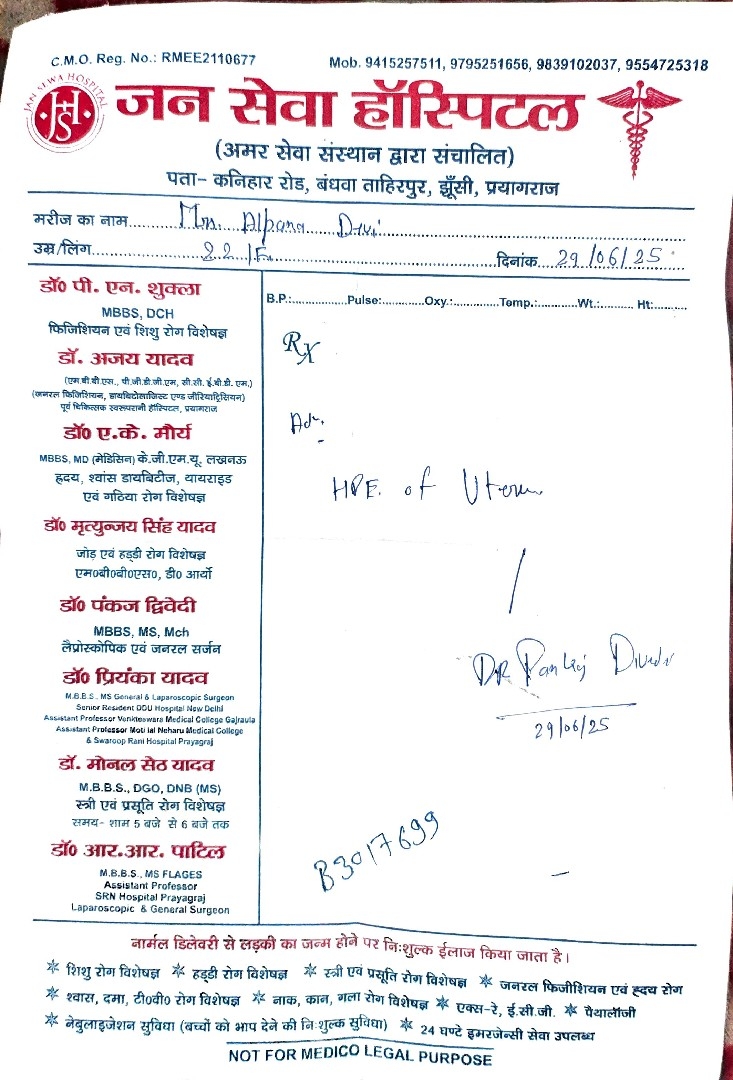 C.M.O. Reg. No.: RMEE2110677
Mob. 9415257511, 9795251656, 9839102037, 9554725318
JAN SEWA HOSPITAL
JSH
जन सेवा हॉस्पिटल
(अमर सेवा संस्थान द्वारा संचालित)
पता- कनिहार रोड, बंधवा ताहिरपुर, झूँसी, प्रयागराज
मरीज का नाम Mrs. Alpana Devi
उम्र/लिंग 22/F दिनांक 29/06/25
B.P.: Pulse: Oxy.: Temp.: Wt.: Ht:
डॉ० पी. एन. शुक्ला
MBBS, DCH
फिजिशियन एवं शिशु रोग विशेषज्ञ
डॉ. अजय यादव
(एम.बी.बी.एस., पी.जी.डी.जी.एम, सी.सी. ई.बी.डी. एम.)
(जनरल फिजिशियन, डायबिटोलाजिस्ट एण्ड जीरियाट्रिसियन)
पूर्व चिकित्सक स्वरूपरानी हॉस्पिटल, प्रयागराज
डॉ० ए.के. मौर्य
MBBS, MD (मेडिसिन) के.जी.एम.यू. लखनऊ
ह्रदय, श्वांस डायबिटीज, थायराइड
एवं गठिया रोग विशेषज्ञ
डॉ० मृत्युन्जय सिंह यादव
जोड़ एवं हड्डी रोग विशेषज्ञ
एम०बी०बी०एस०, डी० आर्थो
डॉ० पंकज द्विवेदी
MBBS, MS, Mch
लैप्रोस्कोपिक एवं जनरल सर्जन
डॉ० प्रियंका यादव
M.B.B.S., MS General & Laparoscopic Surgeon
Senior Resident DDU Hospital New Delhi
Assistant Professor Venkteswara Medical College Gajraula
Assistant Professor Moti lal Neharu Medical College
& Swaroop Rani Hospital Prayagraj
डॉ. मोनल सेठ यादव
M.B.B.S., DGO, DNB (MS)
स्त्री एवं प्रसूति रोग विशेषज्ञ
समय- शाम 5 बजे से 6 बजे तक
डॉ० आर.आर. पाटिल
M.B.B.S., MS FLAGES
Assistant Professor
SRN Hospital Prayagraj
Laparoscopic & General Surgeon
Rx
Adv.
HPE. of Uterus
DR Pankaj Divedi
29/06/25
B3017699
नार्मल डिलेवरी से लड़की का जन्म होने पर निःशुल्क ईलाज किया जाता है।
शिशु रोग विशेषज्ञ हड्डी रोग विशेषज्ञ स्त्री एवं प्रसूति रोग विशेषज्ञ जनरल फिजीशियन एवं ह्रदय रोग
श्वास, दमा, टी०वी० रोग विशेषज्ञ नाक, कान, गला रोग विशेषज्ञ एक्स-रे, ई.सी.जी. पैथालॉजी
नेबुलाइजेशन सुविधा (बच्चों को भाप देने की निःशुल्क सुविधा) 24 घण्टे इमरजेन्सी सेवा उपलब्ध
NOT FOR MEDICO LEGAL PURPOSE